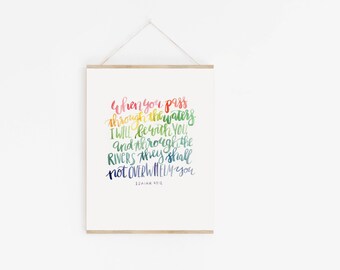 When you pass
through the waters
I WILL be with YOU
and through the
RIVERS they shall
not OVERWHELM you
ISAIAH 43:2